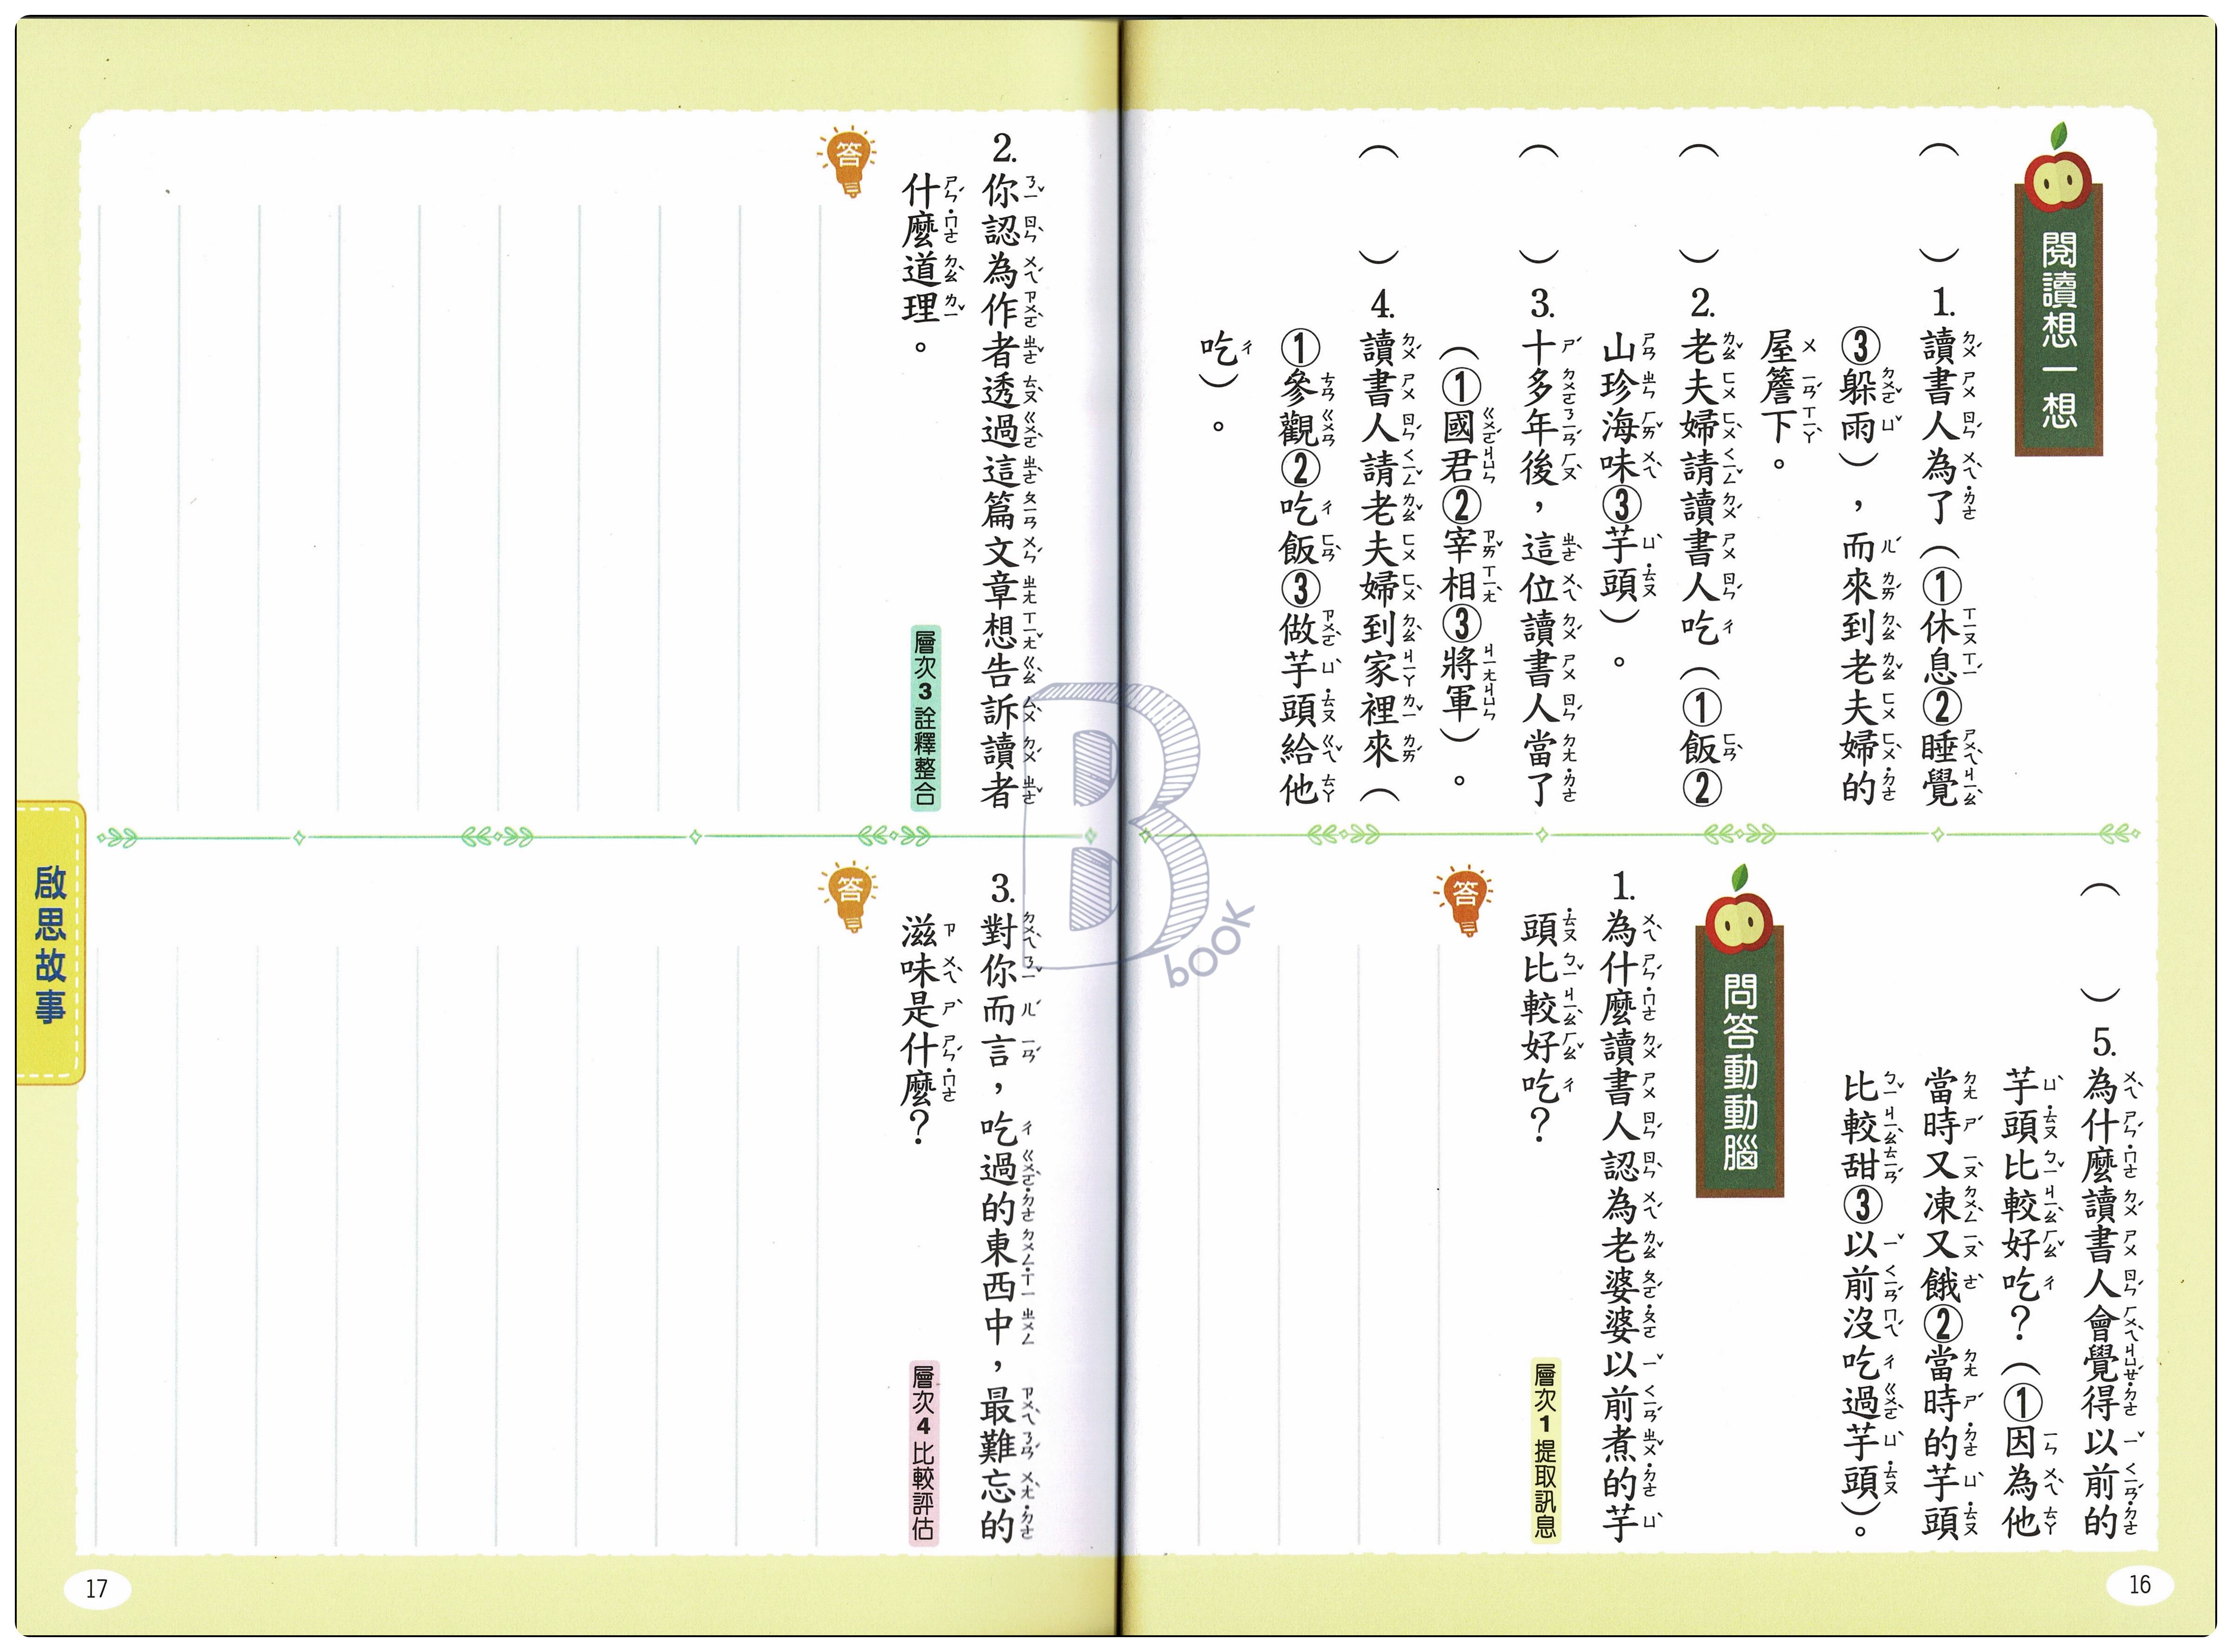 閱讀想一想
（　）1.讀書人為了（①休息②睡覺
③躲雨），而來到老夫婦的
屋簷下。
（　）2.老夫婦請讀書人吃（①飯②
山珍海味③芋頭）。
（　）3.十多年後，這位讀書人當了
（①國君②宰相③將軍）。
（　）4.讀書人請老夫婦到家裡來（
①參觀②吃飯③做芋頭給他
吃）。
（　）5.為什麼讀書人會覺得以前的
芋頭比較好吃？（①因為他
當時又凍又餓②當時的芋頭
比較甜③以前沒吃過芋頭）。
問答動動腦
1.為什麼讀書人認為老婆婆以前煮的芋
頭比較好吃？
層次1 提取訊息
答
16
2.你認為作者透過這篇文章想告訴讀者
什麼道理。
層次3 詮釋整合
答
3.對你而言，吃過的東西中，最難忘的
滋味是什麼？
層次4 比較評估
答
啟思故事
17
B book